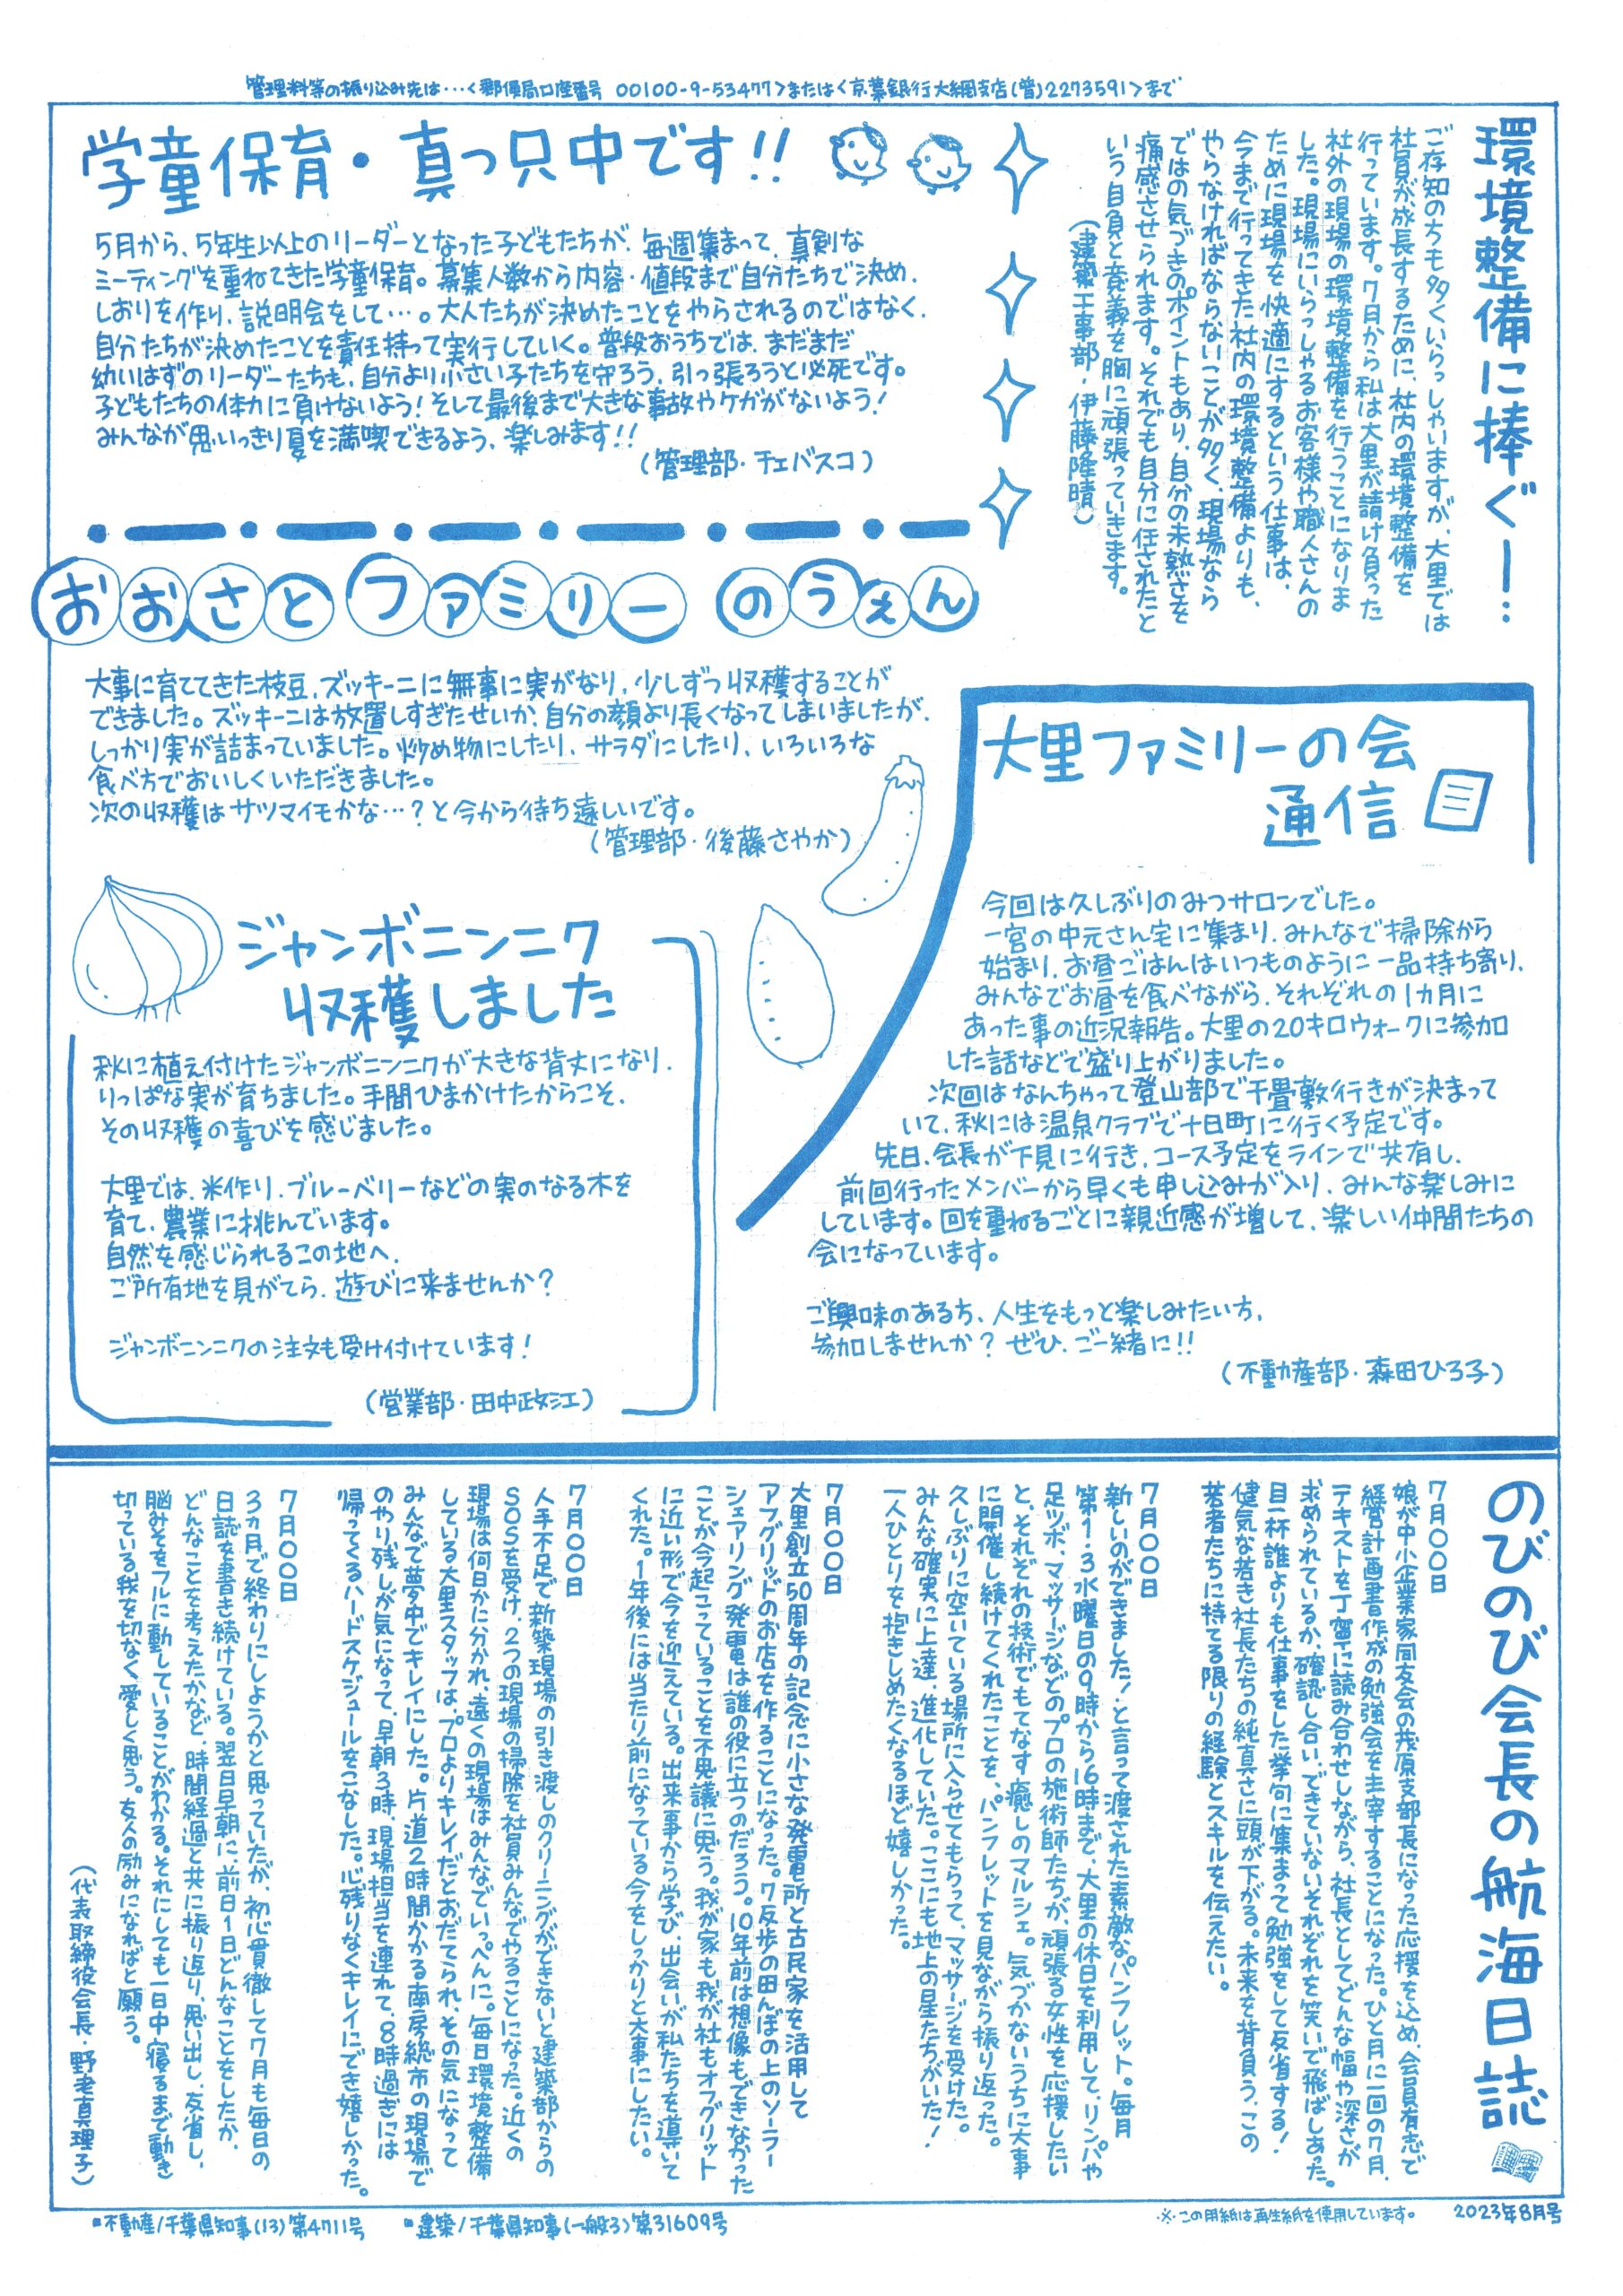 管理料等の振り込み先は…<郵便局口座番号 00100-9-53477>または<京葉銀行大網支店(普)2273591>まで
環境整備に捧ぐー…
ご存知の方も多くいらっしゃいますが、大里では
社員が成長するために、社内の環境整備を
行っています。7月から私は大里が請け負った
社外の現場の環境整備を行うことになりま
した。現場にいらっしゃるお客様や職人さんの
ために現場を快適にするという仕事は、
今まで行ってきた社内の環境整備よりも、
やらなければならないことが多く、現場なら
ではの気づきのポイントもあり、自分の未熟さを
痛感させられます。それでも自分に任されたと
いう自負と意義を胸に頑張っていきます。
(建築工事部・伊藤隆晴)
学童保育・真っ只中です!!
5月から、5年生以上のリーダーとなった子どもたちが、毎週集まって、真剣な
ミーティングを重ねてきた学童保育。募集人数から内容・値段まで自分たちで決め、
しおりを作り、説明会をして…。大人たちが決めたことをやらされるのではなく、
自分たちが決めたことを責任持って実行していく。普段おうちでは、まだまだ
幼いはずのリーダーたちも、自分より小さい子たちを守ろう、引っ張ろうと必死です。
子どもたちの体力に負けないよう!そして最後まで大きな事故やケガがないよう!
みんなが思いっきり夏を満喫できるよう、楽しみます!!
(管理部・チェバスコ)
おおさとファミリーのうえん
大事に育ててきた枝豆、ズッキーニに無事に実がなり、少しずつ収穫することが
できました。ズッキーニは放置しすぎたせいか、自分の顔より長くなってしまいましたが、
しっかり実が詰まっていました。炒め物にしたり、サラダにしたり、いろいろな
食べ方でおいしくいただきました。
次の収穫はサツマイモかな…?と今から待ち遠しいです。
(管理部・後藤さやか)
ジャンボニンニク
収穫しました
秋に植え付けたジャンボニンニクが大きな背丈になり、
りっぱな実が育ちました。手間ひまかけたからこそ、
その収穫の喜びを感じました。
大里では、米作り、ブルーベリーなどの実のなる木を
育て、農業に挑んでいます。
自然を感じられるこの地へ、
ご所有地を見がてら、遊びに来ませんか?
ジャンボニンニクの注文も受け付けています!
(営業部・田中政江)
大里ファミリーの会
通信
今回は久しぶりのみつサロンでした。
一宮の中元さん宅に集まり、みんなで掃除から
始まり、お昼ごはんはいつものように一品持ち寄り、
みんなでお昼を食べながら、それぞれの1カ月に
あった事の近況報告。大里の20キロウォークに参加
した話などで盛り上がりました。
次回はなんちゃって登山部で千畳敷行きが決まって
いて、秋には温泉クラブで十日町に行く予定です。
先日、会長が下見に行き、コース予定をラインで共有し、
前回行ったメンバーから早くも申し込みが入り、みんな楽しみに
しています。回を重ねるごとに親近感が増して、楽しい仲間たちの
会になっています。
ご興味のある方、人生をもっと楽しみたい方、
参加しませんか?ぜひ、ご一緒に!!
(不動産部・森田ひろ子)
のびのび会長の航海日誌
7月〇〇日
娘が中小企業家同友会の茂原支部長になった応援を込め、会員有志で
経営計画書作成の勉強会を主宰することになった。ひと月に一回の7月、
テキストを丁寧に読み合わせしながら、社長としてどんな幅や深さが
求められているか、確認し合い、できていないそれぞれを笑いで飛ばしあった。
目一杯誰よりも仕事をした挙句に集まって勉強をして反省する!
健気な若き社長たちの純真さに頭が下がる。未来を背負う、この
若者たちに持てる限りの経験とスキルを伝えたい。
7月〇〇日
新しいのができました!と言って渡された素敵なパンフレット。毎月
第1・3水曜日の9時から16時まで、大里の休日を利用して、リンパや
足ツボ、マッサージなどのプロの施術師たちが、頑張る女性を応援したい
と、それぞれの技術でもてなす癒しのマルシェ。気づかないうちに大事
に開催し続けてくれたことを、パンフレットを見ながら振り返った。
久しぶりに空いている場所に入らせてもらって、マッサージを受けた。
みんな確実に上達、進化していた。ここにも地上の星たちがいた!
一人ひとりを抱きしめたくなるほど嬉しかった。
7月〇〇日
大里創立50周年の記念に小さな発電所と古民家を活用して
アフグリッドのお店を作ることになった。7反歩の田んぼの上のソーラー
シェアリング発電は誰の役に立つのだろう。10年前は想像もできなかった
ことが今起こっていることを不思議に思う。我が家も我が社もオフグリット
に近い形で今を迎えている。出来事から学び、出会いが私たちを導いて
くれた。1年後には当たり前になっている今をしっかりと大事にしたい。
7月〇〇日
人手不足で新築現場の引き渡しのクリーニングができないと建築部からの
SOSを受け、2つの現場の掃除を社員みんなでやることになった。近くの
現場は何日かに分かれ、遠くの現場はみんなでいっぺんに。毎日環境整備
している大里スタッフは、プロよりキレイだとおだてられ、その気になって
みんなで夢中でキレイにした。片道2時間かかる南房総市の現場で
のやり残しが気になって、早朝3時、現場担当を連れて、8時過ぎには
帰ってくるハードスケジュールをこなした。心残りなくキレイにでき嬉しかった。
7月〇〇日
3ヵ月で終わりにしようかと思っていたが、初心貫徹して7月も毎日の
日誌を書き続けている。翌日早朝に、前日1日どんなことをしたか、
どんなことを考えたかなど、時間経過と共に振り返り、思い出し、反省し、
脳みそをフルに動していることがわかる。それにしても一日中寝るまで動き
切っている我を切なく愛しく思う。友人の励みになればと願う。
(代表取締役会長・野老真理子)
■不動産/千葉県知事(13)第4711号 ■建築/千葉県知事(一般3)第31609号
※この用紙は再生紙を使用しています。 2023年8月号